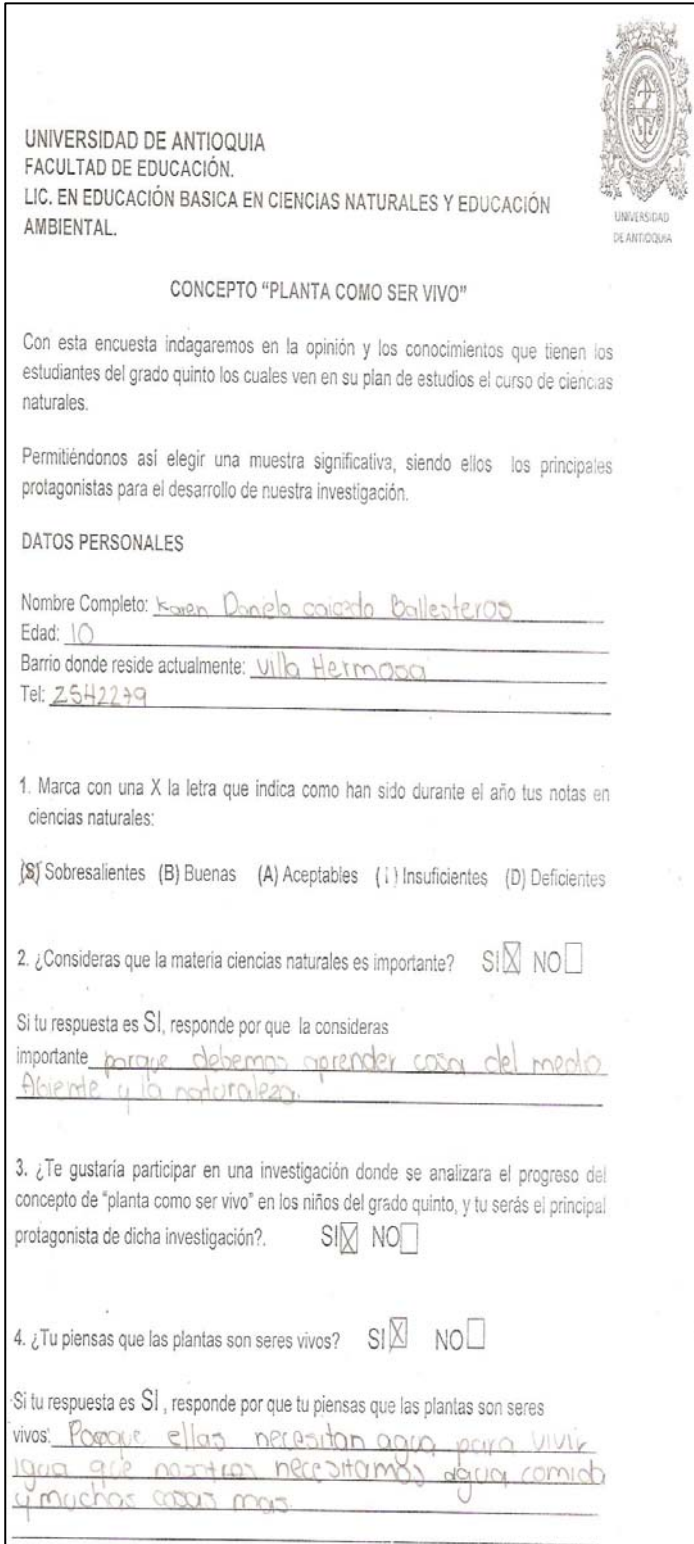 UNIVERSIDAD DE ANTIOQUIA
FACULTAD DE EDUCACIÓN.
LIC. EN EDUCACIÓN BASICA EN CIENCIAS NATURALES Y EDUCACIÓN
AMBIENTAL.
UNIVERSIDAD
DE ANTIOQUIA
CONCEPTO “PLANTA COMO SER VIVO”
Con esta encuesta indagaremos en la opinión y los conocimientos que tienen los
estudiantes del grado quinto los cuales ven en su plan de estudios el curso de ciencias
naturales.
Permitiéndonos así elegir una muestra significativa, siendo ellos los principales
protagonistas para el desarrollo de nuestra investigación.
DATOS PERSONALES
Nombre Completo: Karen Daniela caicedo Ballesteros
Edad: 10
Barrio donde reside actualmente: Villa Hermosa
Tel: 2542279
1. Marca con una X la letra que indica como han sido durante el año tus notas en
ciencias naturales:
(S) Sobresalientes (B) Buenas (A) Aceptables (I) Insuficientes (D) Deficientes
2. ¿Consideras que la materia ciencias naturales es importante? SI X NO
Si tu respuesta es SI, responde por que la consideras
importante porque debemos aprender cosa del medio
Abiente y la naturaleza.
3. ¿Te gustaría participar en una investigación donde se analizara el progreso del
concepto de “planta como ser vivo” en los niños del grado quinto, y tu serás el principal
protagonista de dicha investigación?. SI X NO
4. ¿Tu piensas que las plantas son seres vivos? SI X NO
Si tu respuesta es SI , responde por que tu piensas que las plantas son seres
vivos: Porque ellas necesitan agua para vivir
igua que nosotros necesitamos agua comida
y muchas cosas mas.